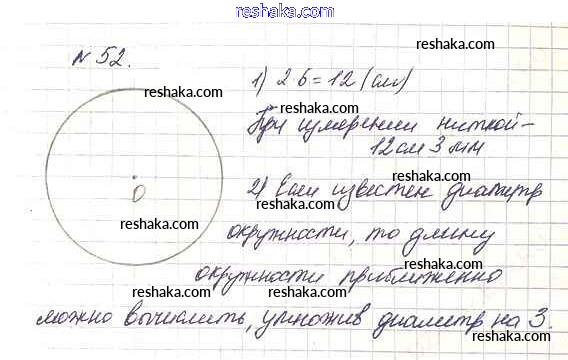 reshaka.com
№ 52.
reshaka.com
1) 2 6 = 12 (см)
reshaka.com
reshaka.com
При измерении ниткой –
12 см 3 мм
reshaka.com
reshaka.com
O
2) Если известен диаметр
reshaka.com
reshaka.com
окружности, то длину
reshaka.com
окружности приближенно
reshaka.com
reshaka.com
можно вычислить, умножив диаметр на 3.
reshaka.com